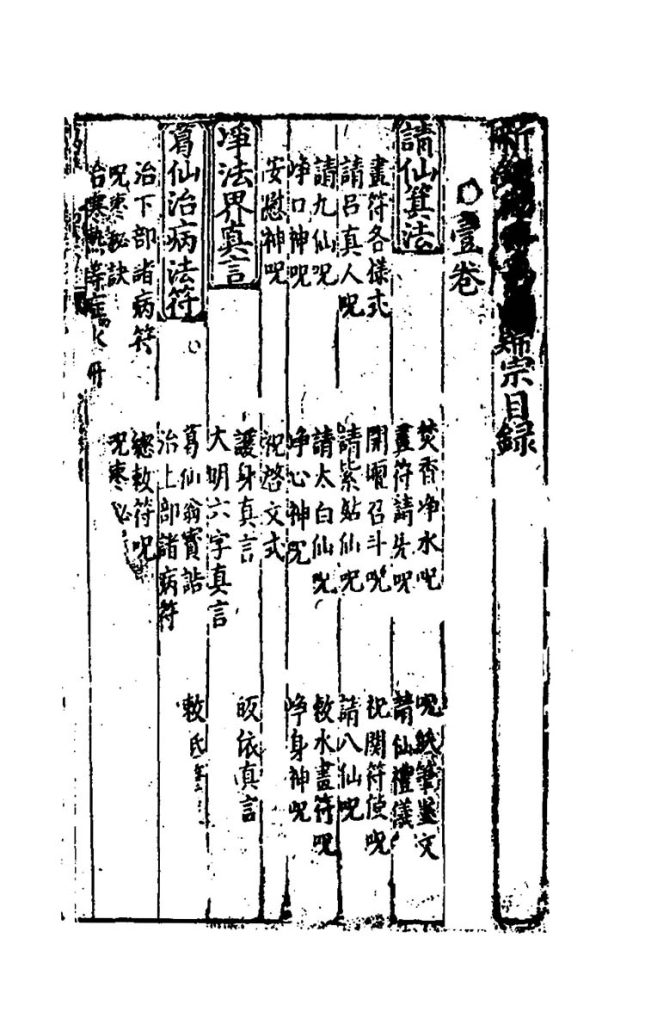 新宗目錄
○壹卷
請仙箕法
焚香净水呪　呪紙筆墨文
畫符各樣式　畫符請先呪　請仙禮儀
請呂真人呪　開壇召斗呪　祝関符使呪
請九仙呪　請紫姑仙呪　請八仙呪
净口神呪　請太白仙呪　敕水畫符呪
安慰神呪　净心神咒　净身神呪
祝啓文式
净法界真言
護身真言　皈依真言
大明六字真言
葛仙治病法符
葛仙翁寶誥　敕
治下部諸病符　治上部諸病符
呪棗秘訣　總敕符呪
治寒熱等症　呪棗